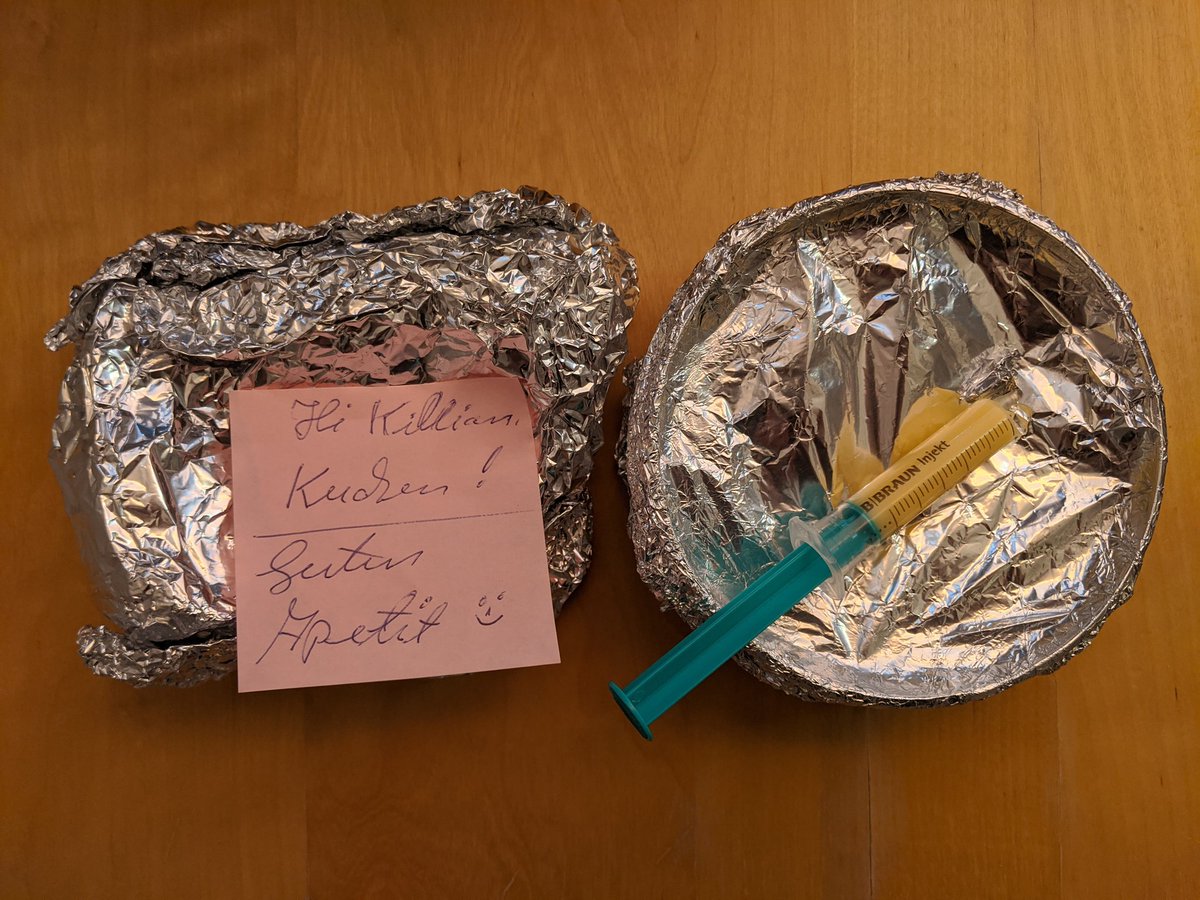 Hi Killian,
Kuchen!
Guten
Apetit
B|BRAUN Injekt